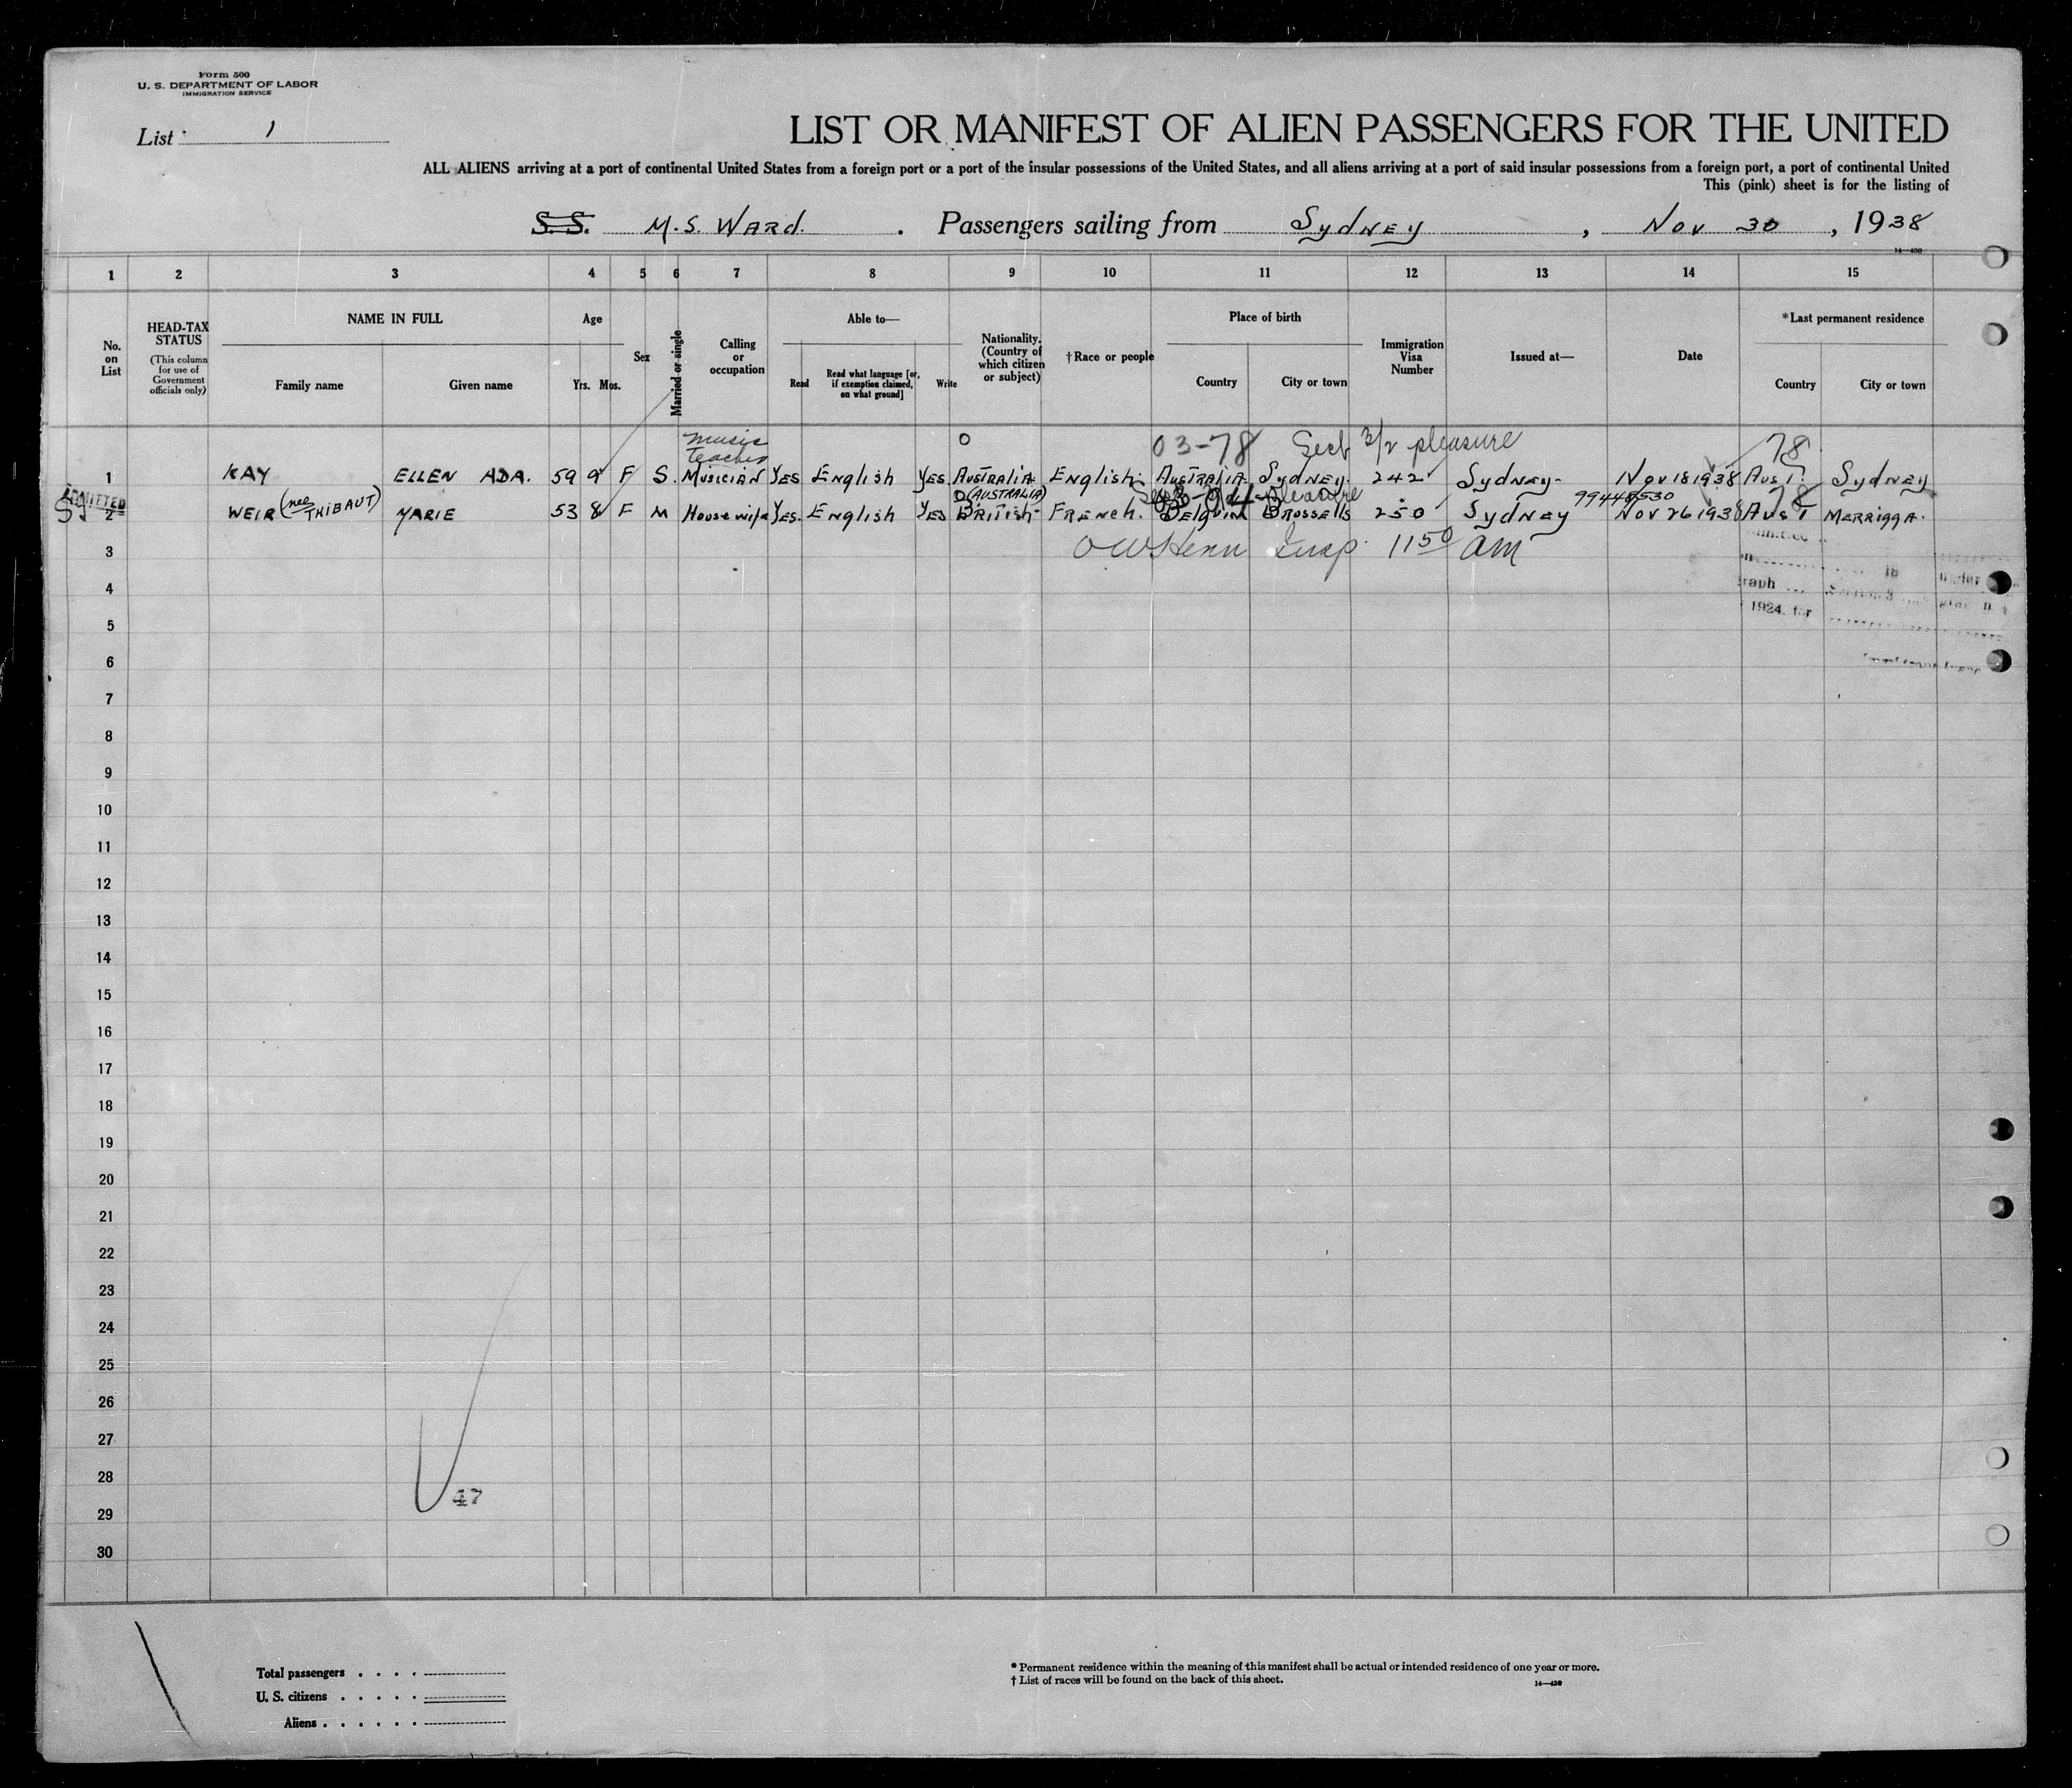 Form 500
U. S. DEPARTMENT OF LABOR
IMMIGRATION SERVICE
List 1
LIST OR MANIFEST OF ALIEN PASSENGERS FOR THE UNITED
ALL ALIENS arriving at a port of continental United States from a foreign port or a port of the insular possessions of the United States, and all aliens arriving at a port of said insular possessions from a foreign port, a port of continental United
This (pink) sheet is for the listing of
S.S. M.S. WARD. Passengers sailing from SYDNEY, NOV 30, 1938
1 2 3 4 5 6 7 8 9 10 11 12 13 14 15
No. on List
HEAD-TAX STATUS
(This column for use of Government officials only)
NAME IN FULL
Family name Given name
Age
Yrs. Mos.
Sex
Married or single
Calling or occupation
Able to—
Read
Read what language [or, if exemption claimed, on what ground]
Write
Nationality. (Country of which citizen or subject)
†Race or people
Place of birth
Country City or town
Immigration Visa Number
Issued at—
Date
*Last permanent residence
Country City or town
music teacher 0 03-78 Sect 3/2 pleasure 78
1 KAY ELLEN ADA. 59 9 F S. MUSICIAN YES English YES. AUSTRALIA English. AUSTRALIA Sydney. 242 Sydney- Nov 18 1938 AUST. Sydney
ADMITTED (AUSTRALIA) pleasure 99448/530 78
2 WEIR (nee THIBAUT) MARIE 53 8 F M Housewife YES. English YES BRITISH FRENCH. BELGIUM BRUSSELLS 250 Sydney NOV 26 1938 AUST MERRIGGA.
3 Insp. 11 50 am
4 raph
5 1924. for
6
7
8
9
10
11
12
13
14
15
16
17
18
19
20
21
22
23
24
25
26
27
28
47
29
30
Total passengers
U. S. citizens
Aliens
* Permanent residence within the meaning of this manifest shall be actual or intended residence of one year or more.
† List of races will be found on the back of this sheet.
14—430